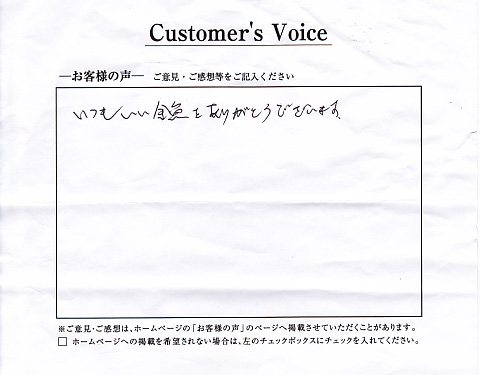 Customer's Voice
―お客様の声― ご意見・ご感想等をご記入ください
いつもいい金魚をありがとうございます。
※ご意見・ご感想は、ホームページの「お客様の声」のページへ掲載させていただくことがあります。
□ ホームページへの掲載を希望されない場合は、左のチェックボックスにチェックを入れてください。